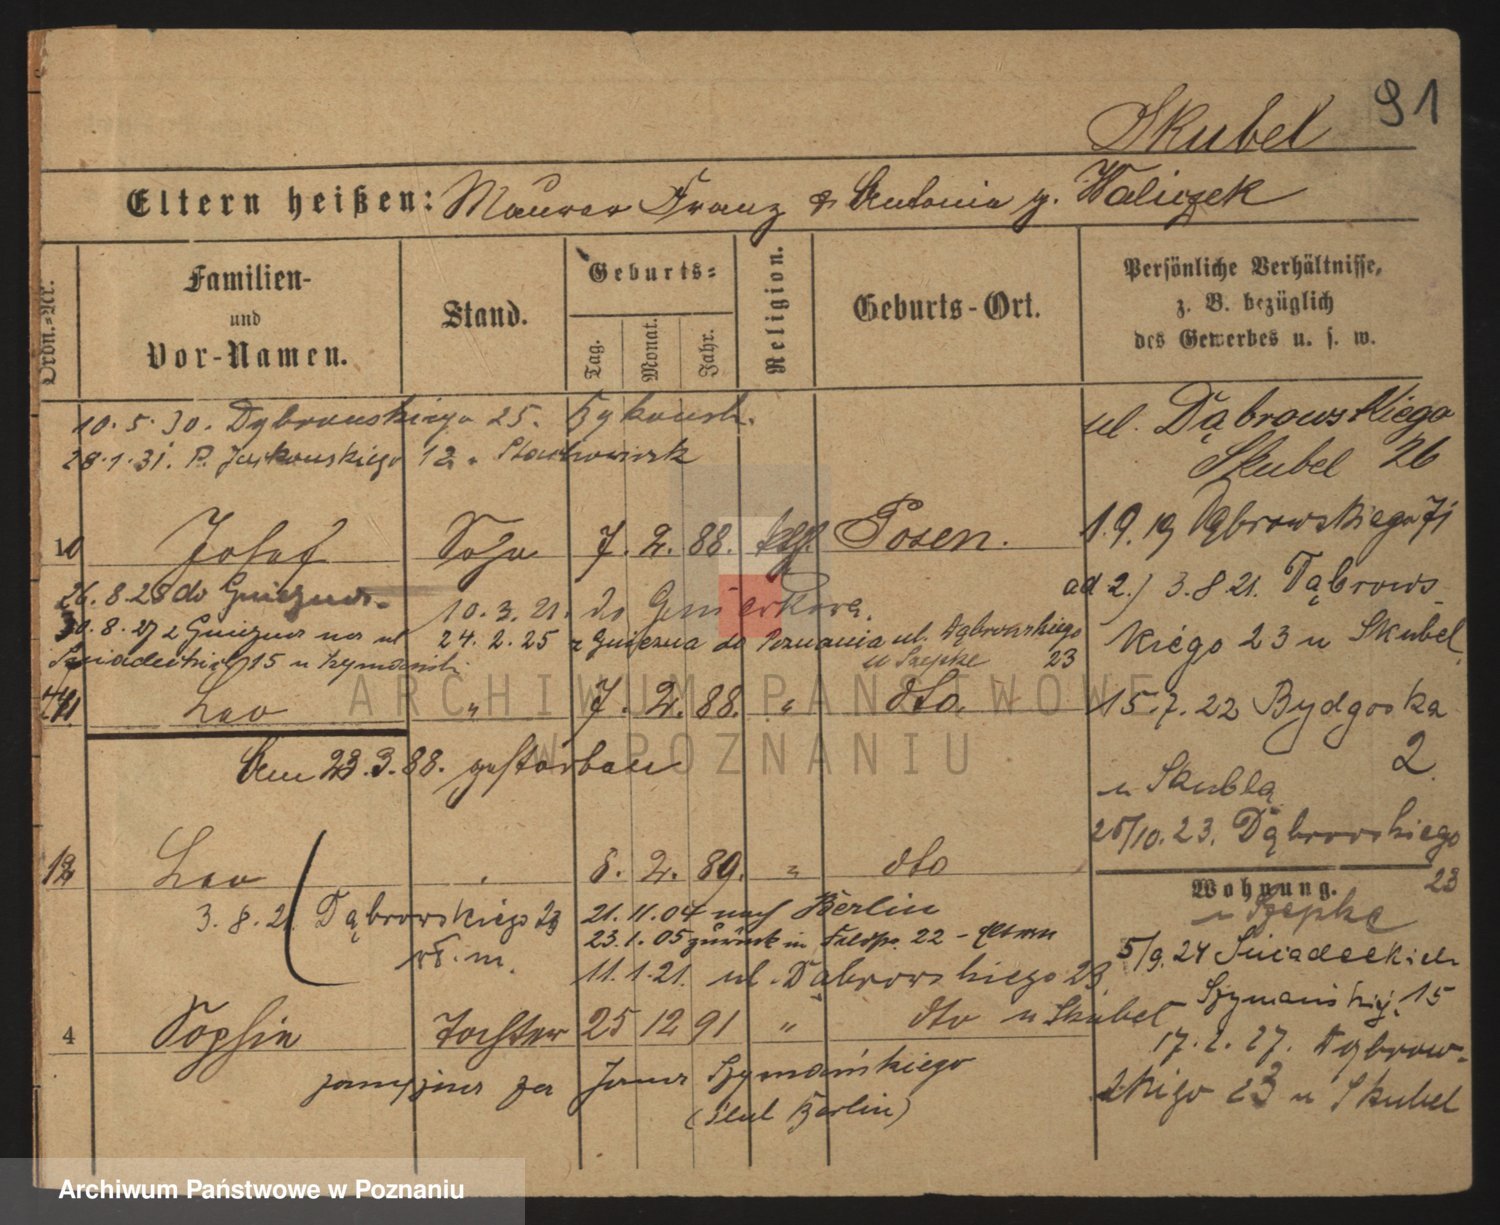 91
Skubel
Eltern heißen: Maurer Franz & Antonia g. Waliczek
Ordn.-Nr.
Familien- und Vor-Namen.
Stand.
Geburts-
Tag. Monat. Jahr.
Religion.
Geburts-Ort.
Persönliche Verhältnisse,
z. B. bezüglich
des Gewerbes u. s. w.
10.5.30. Dąbrowskiego 25.
28.1.31. P. Jackowskiego 12.
ul. Dąbrowskiego
Skubel 26
10 Josef Sohn 7. 2. 88. kath. Posen.
1.9.19 Dąbrowskiego 71
26.8.25 do Gniezna.
10.3.21. do
ad 2.) 3.8.21. Dąbrows-
30.8.27 z Gniezna na ul
24.2.25 z Gniezna do Poznania ul. Dąbrowskiego
kiego 23 u Skubel
Śniadeckich 15 u Szymański
u Szepke 23
11 Leo " 7. 2. 88. " dto.
15.7.22 Bydgoska
2.
Am 23.3.88. gestorben
u Skubla
25/10.23. Dąbrowskiego
23
12 Leo 6. 2. 89. " dto
Wohnung.
u Szepke
3.8.21 Dąbrowskiego 23
21.11.04 nach Berlin
23.1.05 zurück in 22 -
5/9.24 Śniadeckich
11.1.21. ul. Dąbrowskiego 23.
Szymański, 15
4 Sophie Tochter 25 12 91 " dto u Skubel
17.2.27. Dąbrow-
skiego 23 u Skubel
zamężna za Szymańskiego
(Berlin)
ARCHIWUM PAŃSTWOWE
W POZNANIU
Archiwum Państwowe w Poznaniu